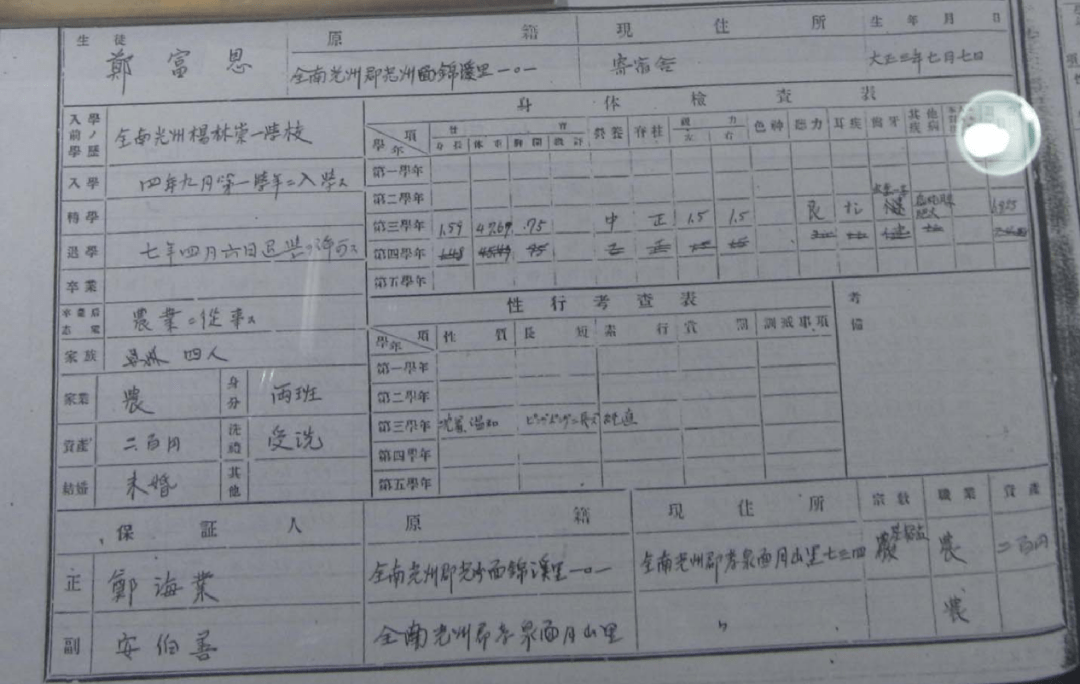 生徒 原籍 現住所 生年月日
鄭富恩 全南光州郡光州面錦溪里一〇一 寄宿舍 大正三年七月七日
入學前ノ學歷 全南光州楊林崇一學校
入學 四年九月第一學年ニ入學ス
轉學
退學 七年四月六日退學
卒業
農業ニ從事ス
家族 四人
農 身分 両班
資產 二百円 洗禮 受洗
結婚 未婚 其他
身体檢查表
學年 項 身長 体重 胸圍 營養 脊柱 視力 左 右 色神 聽力 耳疾 齒牙 其他疾病
第一學年
第二學年
第三學年 1.59 47.69 .75 中 正 1.5 1.5 良
第四學年
第五學年
性行考查表 考備
學年 項 性質 長短 素行 賞罰 訓戒事項
第一學年
第二學年
第三學年 溫和
第四學年
第五學年
保証人 原籍 現住所 宗敎 職業 資產
正 鄭海業 全南光州郡光州面錦溪里一〇一 全南光州郡孝泉面月山里七三四 農 二百円
副 安伯善 全南光州郡孝泉面月山里 〃 農